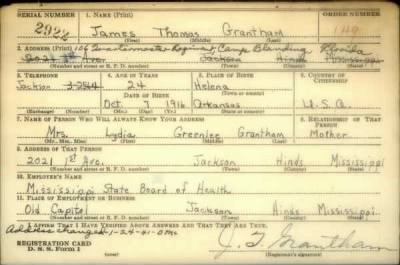 SERIAL NUMBER 1. NAME (Print) ORDER NUMBER
2922 James Thomas Grantham
(First) (Middle) (Last)
2. ADDRESS (Print) 106 Quartermaster Regiment, Camp Blanding Florida
2021 1st Ave. Jackson Hinds Mississippi
(Number and street or R. F. D. number) (Town) (County) (State)
3. TELEPHONE 4. AGE IN YEARS 5. PLACE OF BIRTH 6. COUNTRY OF CITIZENSHIP
Jackson 24 Helena
DATE OF BIRTH
Oct. 7 1916 Arkansas U.S.A.
(Exchange) (Number) (Mo.) (Day) (Yr.) (State or country)
7. NAME OF PERSON WHO WILL ALWAYS KNOW YOUR ADDRESS 8. RELATIONSHIP OF THAT PERSON
Mrs. Lydia Greenlee Grantham Mother
(Mr., Mrs., Miss) (First) (Middle) (Last)
9. ADDRESS OF THAT PERSON
2021 1st Ave. Jackson Hinds Mississippi
(Number and street or R. F. D. number) (Town) (County) (State)
10. EMPLOYER'S NAME
Mississippi State Board of Health
11. PLACE OF EMPLOYMENT OR BUSINESS
Old Capitol Jackson Hinds Mississippi
(Number and street or R. F. D. number) (Town) (County) (State)
I AFFIRM THAT I HAVE VERIFIED ABOVE ANSWERS AND THAT THEY ARE TRUE.
Address changed 1-24-41
REGISTRATION CARD J. T. Grantham
D. S. S. Form 1 (over) (Registrant's signature)